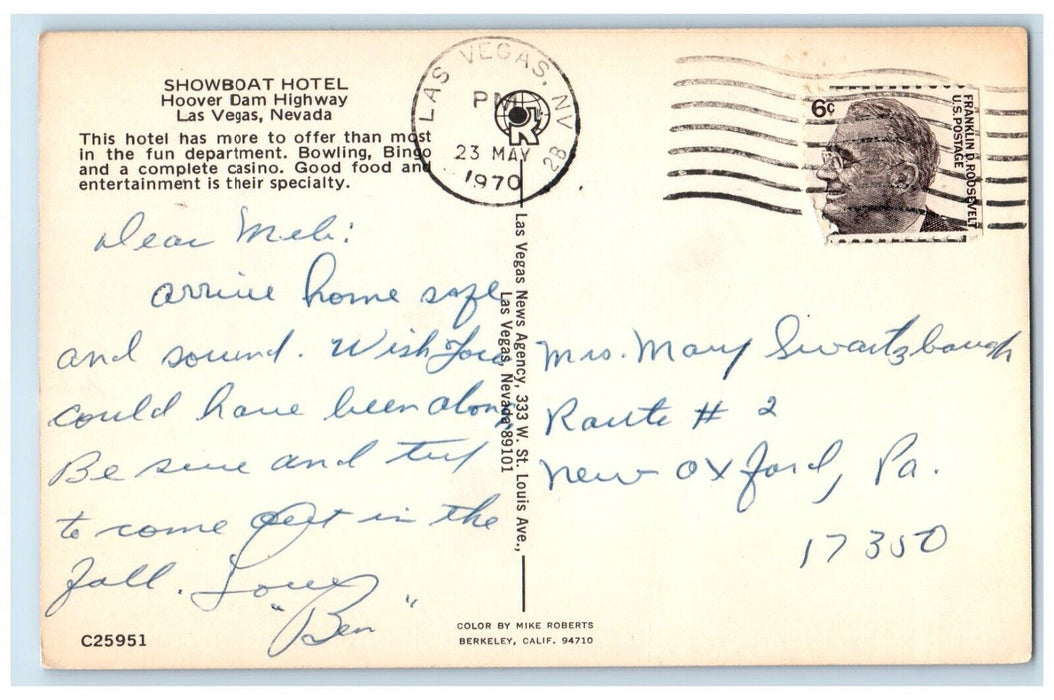 SHOWBOAT HOTEL
Hoover Dam Highway
Las Vegas, Nevada
This hotel has more to offer than most
in the fun department. Bowling, Bingo
and a complete casino. Good food and
entertainment is their specialty.
LAS VEGAS, NV
PM
23 MAY
1970
28
6¢
FRANKLIN D. ROOSEVELT
U.S. POSTAGE
Dear
arrive home safe
and sound. Wish You
could have been along
Be sure and
to come out in the
fall. Love
"Ben"
Las Vegas News Agency, 333 W. St. Louis Ave.,
Las Vegas, Nevada 89101
Mrs. Mary Swartzbaugh
Route # 2
New Oxford, Pa.
17350
C25951
COLOR BY MIKE ROBERTS
BERKELEY, CALIF. 94710